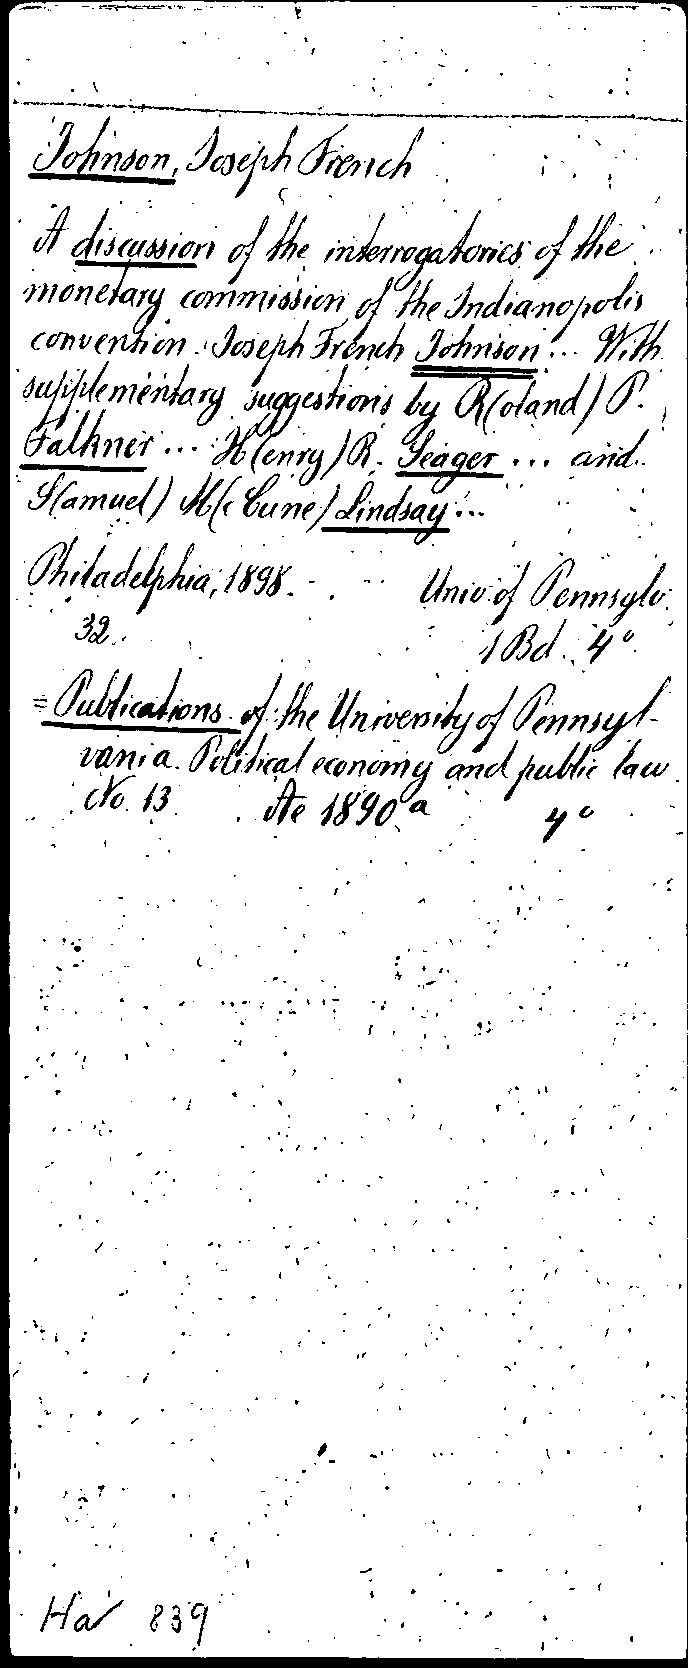 Johnson, Joseph French
A discussion of the interrogatories of the
monetary commission of the Indianopolis
convention. Joseph French Johnson... With
supplementary suggestions by R(oland) P.
Falkner ... H(enry) R. Seager ... and
S(amuel) M(c Cune) Lindsay...
Philadelphia, 1898. Univ of Pennsylv.
32. 1 Bd. 4°
= Publications of the University of Pennsyl-
vania. Political economy and public law
No. 13 Ae 1890 a 4°
Ha 839